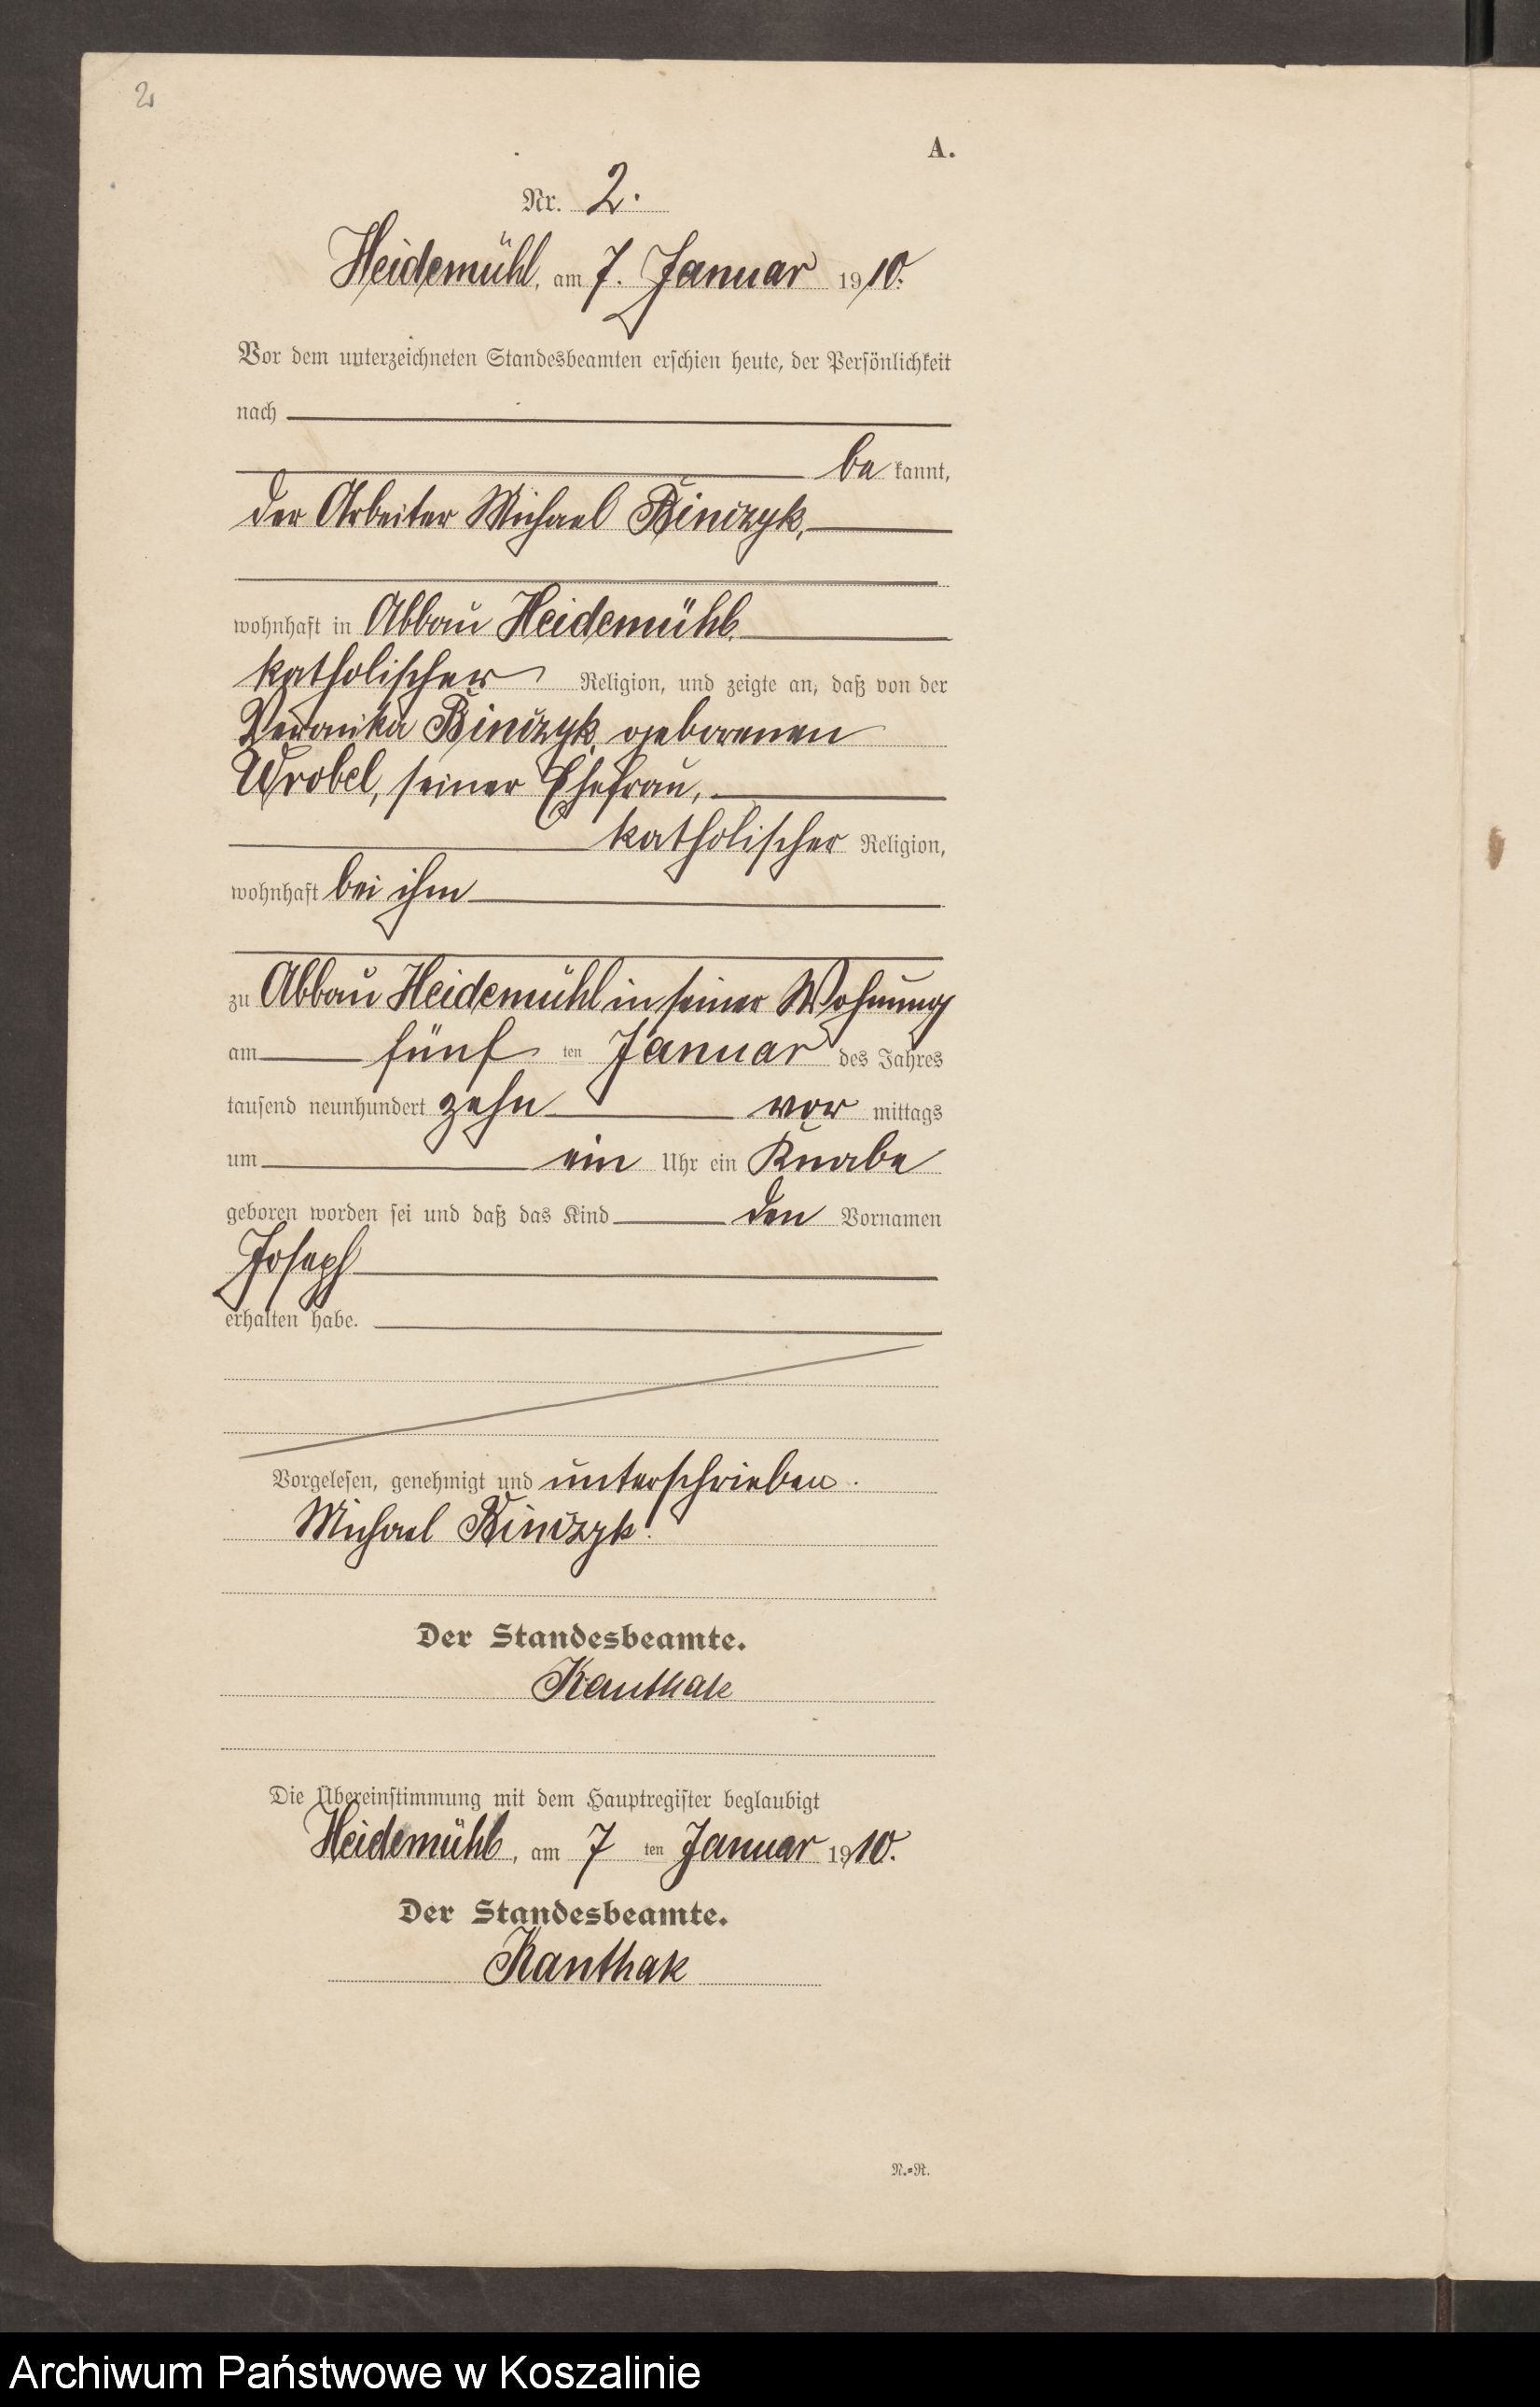 2
A.
Nr. 2.
Heidemühl, am 7. Januar 1910.
Vor dem unterzeichneten Standesbeamten erschien heute, der Persönlichkeit
nach
be kannt,
der Arbeiter Michael Binczyk,
wohnhaft in Abbau Heidemühl,
katholischer Religion, und zeigte an, daß von der
Veronika Binczyk, geborenen
Wrobel, seiner Ehefrau,
katholischer Religion,
wohnhaft bei ihm
zu Abbau Heidemühl in seiner Wohnung
am fünf ten Januar des Jahres
tausend neunhundert zehn vor mittags
um ein Uhr ein Knabe
geboren worden sei und daß das Kind den Vornamen
Joseph
erhalten habe.
Vorgelesen, genehmigt und unterschrieben.
Michael Binczyk.
Der Standesbeamte.
Kanthak
Die Übereinstimmung mit dem Hauptregister beglaubigt
Heidemühl, am 7 ten Januar 1910.
Der Standesbeamte.
Kanthak
N.=R.
Archiwum Państwowe w Koszalinie